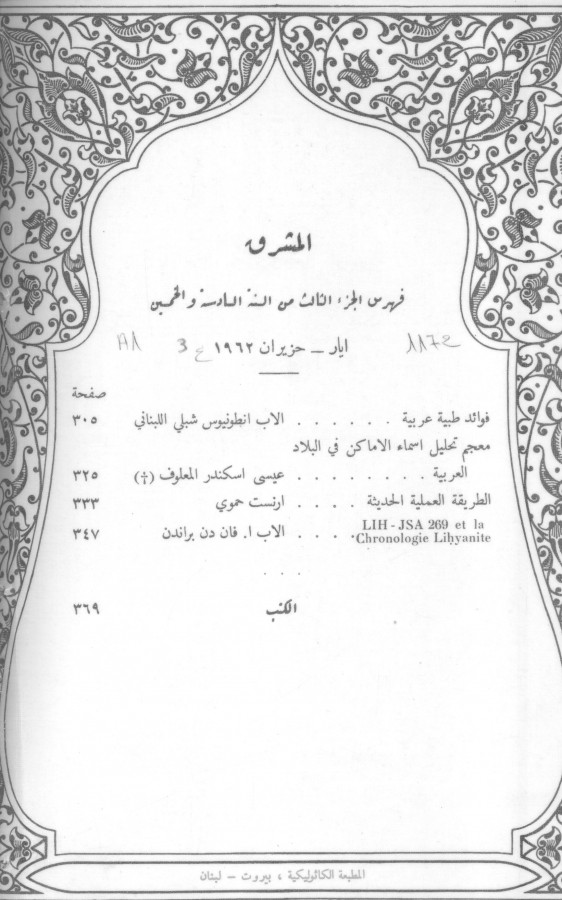 المشرق
فهرس الجزء الثالث من السنة السادسة والخمسين
ايار – حزيران ١٩٦٢
صفحة
فوائد طبية عربية . . . . . . الاب انطونيوس شبلي اللبناني ٣٠٥
معجم تحليل اسماء الاماكن في البلاد
العربية . . . . . . . . عيسى اسكندر المعلوف (†) ٣٢٥
الطريقة العملية الحديثة . . . . ارنست حموي ٣٣٣
LIH - JSA 269 et la
Chronologie Liḥyanite . . . . الاب ا. فان دن براندن ٣٤٧
. . .
الكتب ٣٦٩
المطبعة الكاثوليكية ، بيروت – لبنان